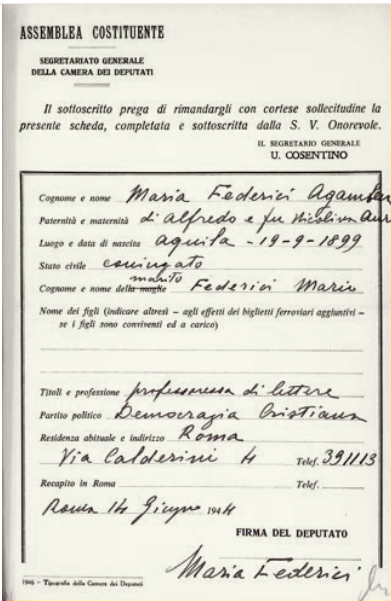 ASSEMBLEA COSTITUENTE
SEGRETARIATO GENERALE
DELLA CAMERA DEI DEPUTATI
Il sottoscritto prega di rimandargli con cortese sollecitudine la
presente scheda, completata e sottoscritta dalla S. V. Onorevole.
IL SEGRETARIO GENERALE
U. COSENTINO
Cognome e nome Maria Federici Agamben
Paternità e maternità di Alfredo e fu Nicolina
Luogo e data di nascita Aquila - 19-9-1899
Stato civile coniugato
marito
Cognome e nome della moglie Federici Mario
Nome dei figli (indicare altresì - agli effetti dei biglietti ferroviari aggiuntivi -
se i figli sono conviventi ed a carico)
Titoli e professione professoressa di lettere
Partito politico Democrazia Cristiana
Residenza abituale e indirizzo Roma
Via Calderini 4 Telef. 391113
Recapito in Roma Telef.
Roma 14 Giugno 194
FIRMA DEL DEPUTATO
Maria Federici
1946 - Tipografia della Camera dei Deputati